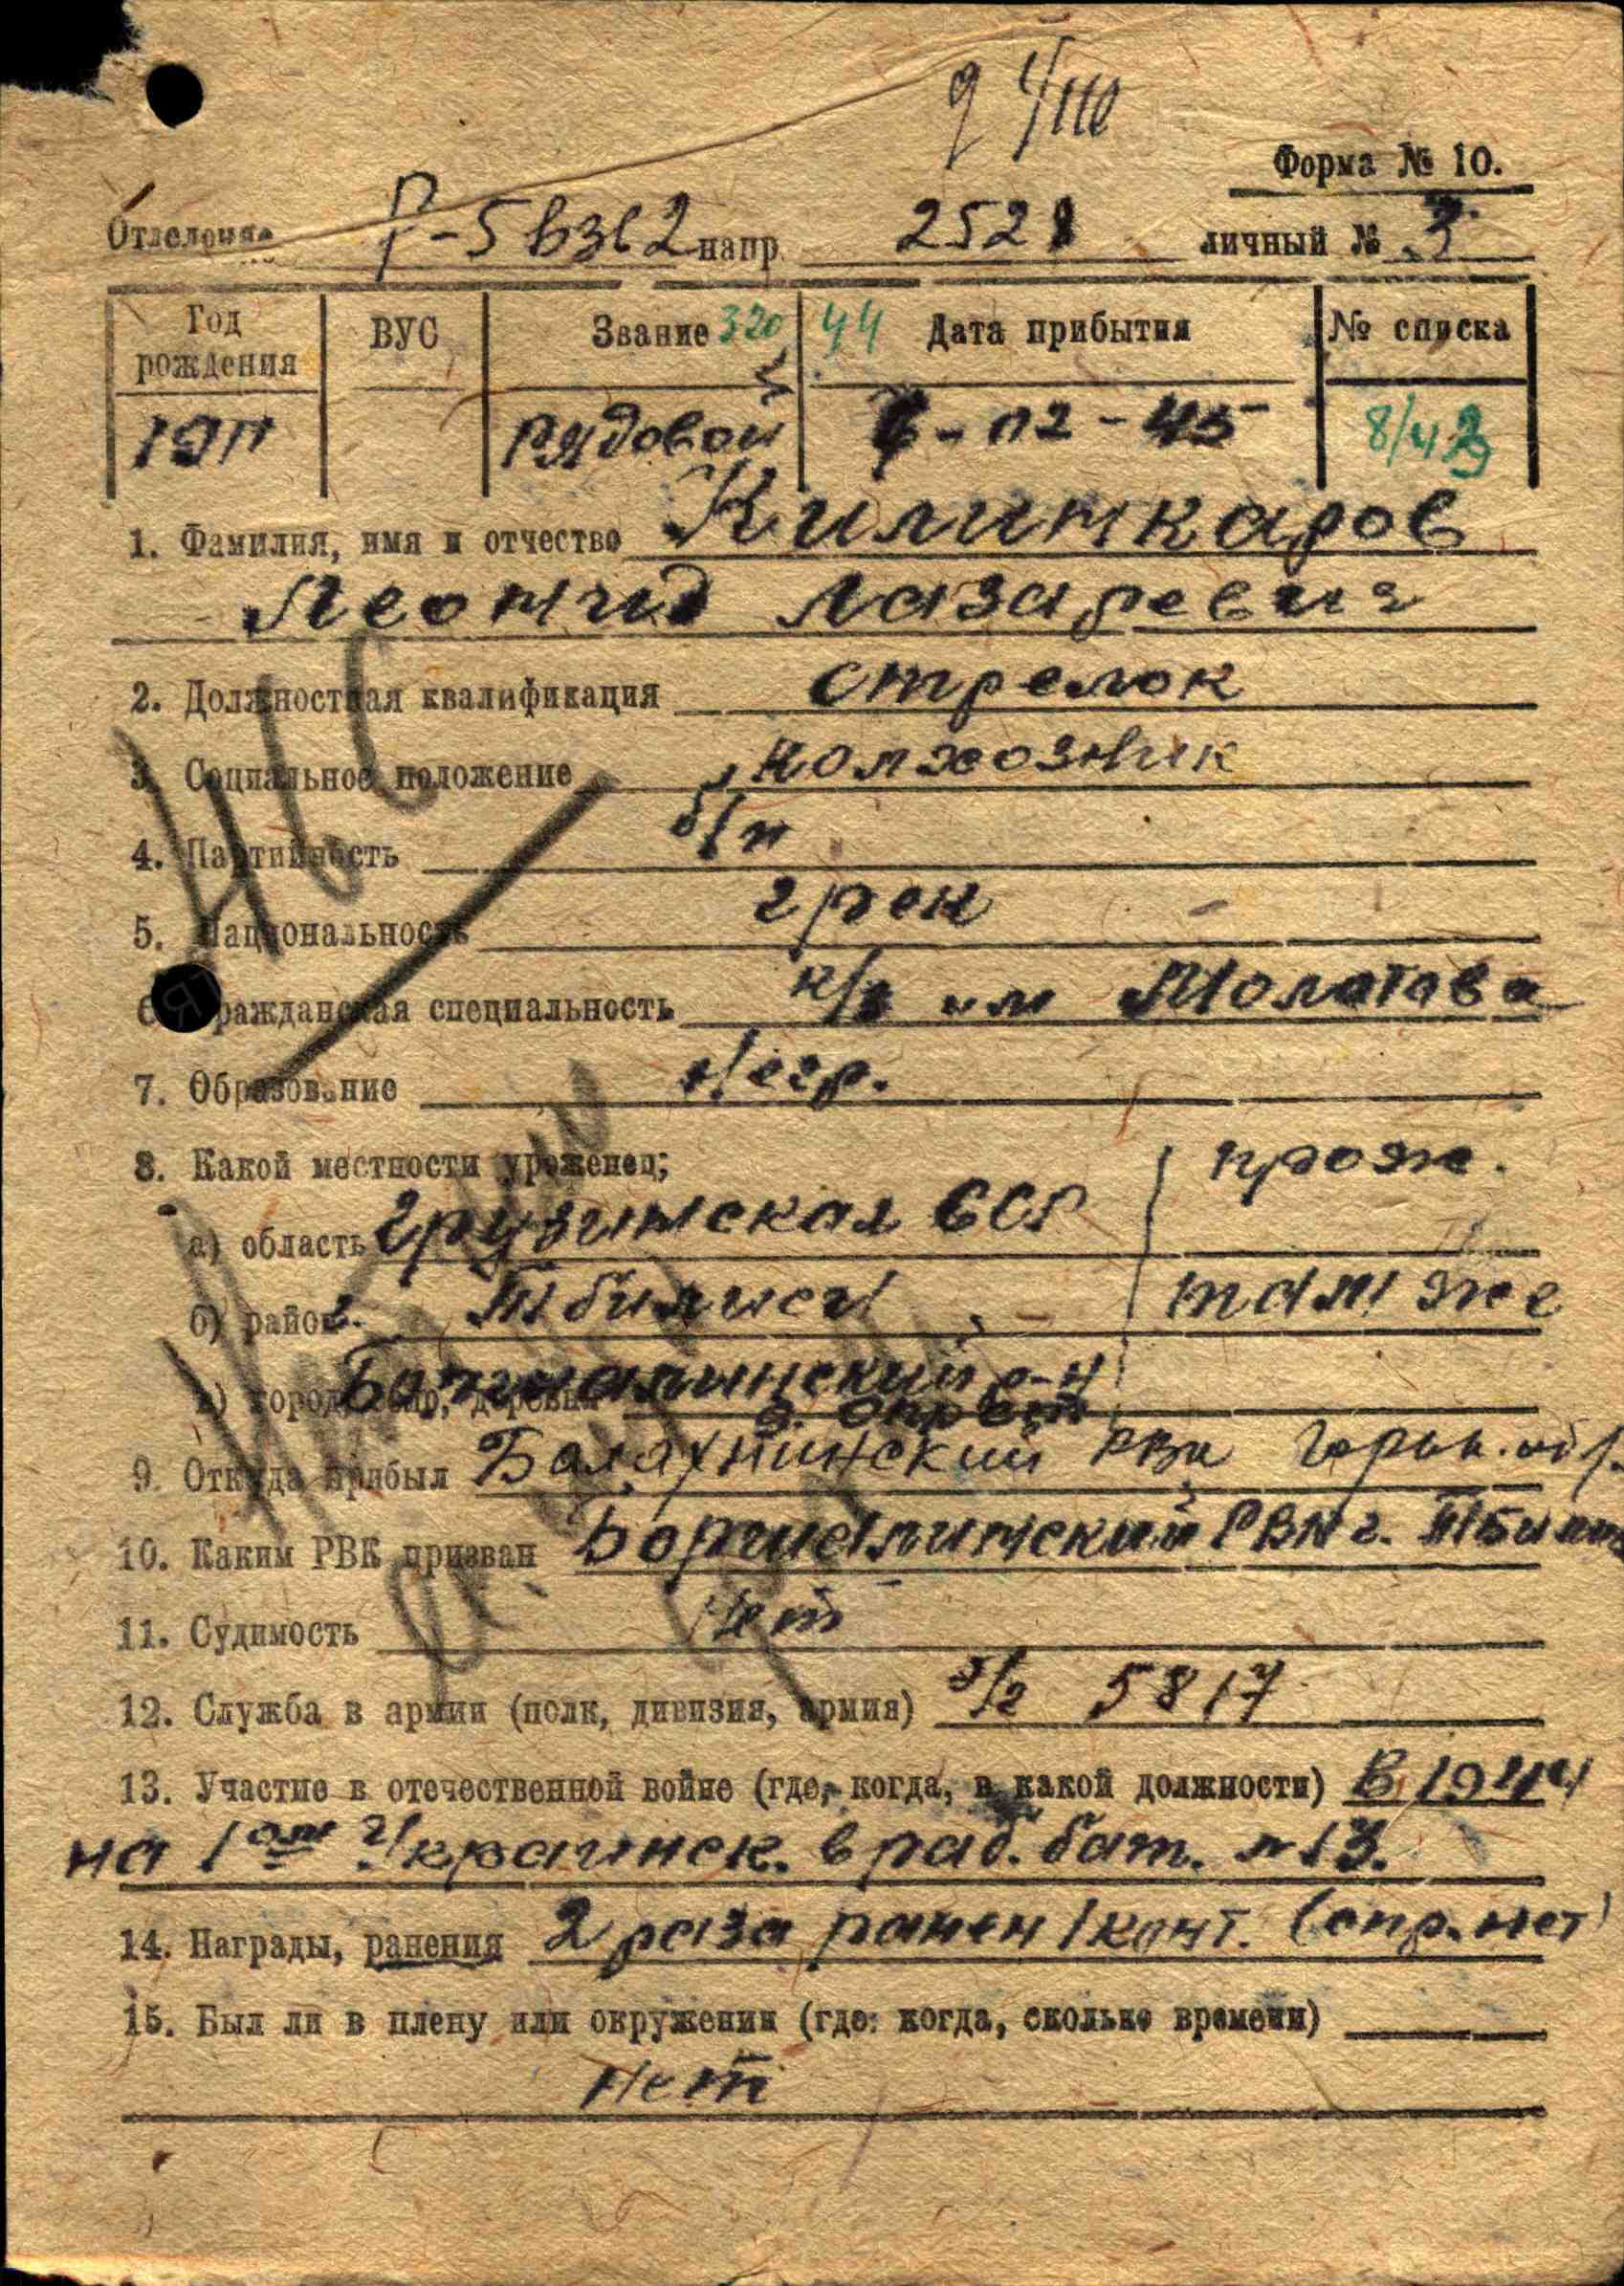 Форма № 10.
Отделение Р-5 взв 2 напр. 2521 личный № 3
Год рождения ВУС Звание 320 44 Дата прибытия № списка
1911 рядовой -02-45 8/4
1. Фамилия, имя и отчество Килинкаров
Леонид Лазаревич
2. Должностная квалификация стрелок
3. Социальное положение колхозник
4. Партийность б/п
5. Национальность грек
6. Гражданская специальность к/з им Молотова
7. Образование негр.
8. Какой местности уроженец; прож.
а) область Грузинская ССР
б) район г. Тбилиси там же
в) город, село, деревня р-н
9. Откуда прибыл Балахнинский РВК Горьк. обл.
10. Каким РВК призван РВК г. Тбилиси
11. Судимость Нет
12. Служба в армии (полк, дивизия, армия) 5817
13. Участие в отечественной войне (где, когда, в какой должности) В 1944
на 1ом Украинск. в раб. бат. № 13.
14. Награды, ранения 2 раза ранен 1 конт. (спр. нет)
15. Был ли в плену или окружении (где: когда, сколько времени)
Нет
НС